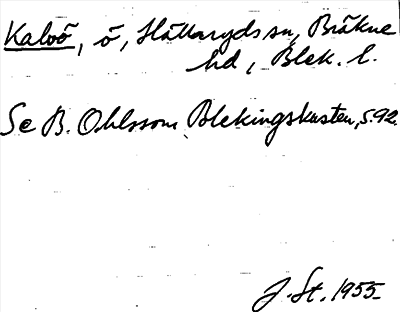 Kalvö, ö, Hällaryds sn, Bräkne
hd, Blek. l.
Se B. Ohlsson, Blekingskusten, s. 92.
J. St. 1955